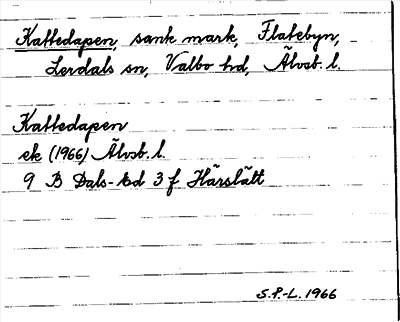 Kattedapen, sank mark, Flatebyn,
Lerdals sn, Valbo hd, Älvsb. l.
Kattedapen
ek (1966) Älvsb. l.
9 B Dals-Ed 3 f Härslätt
S.P.-L. 1966